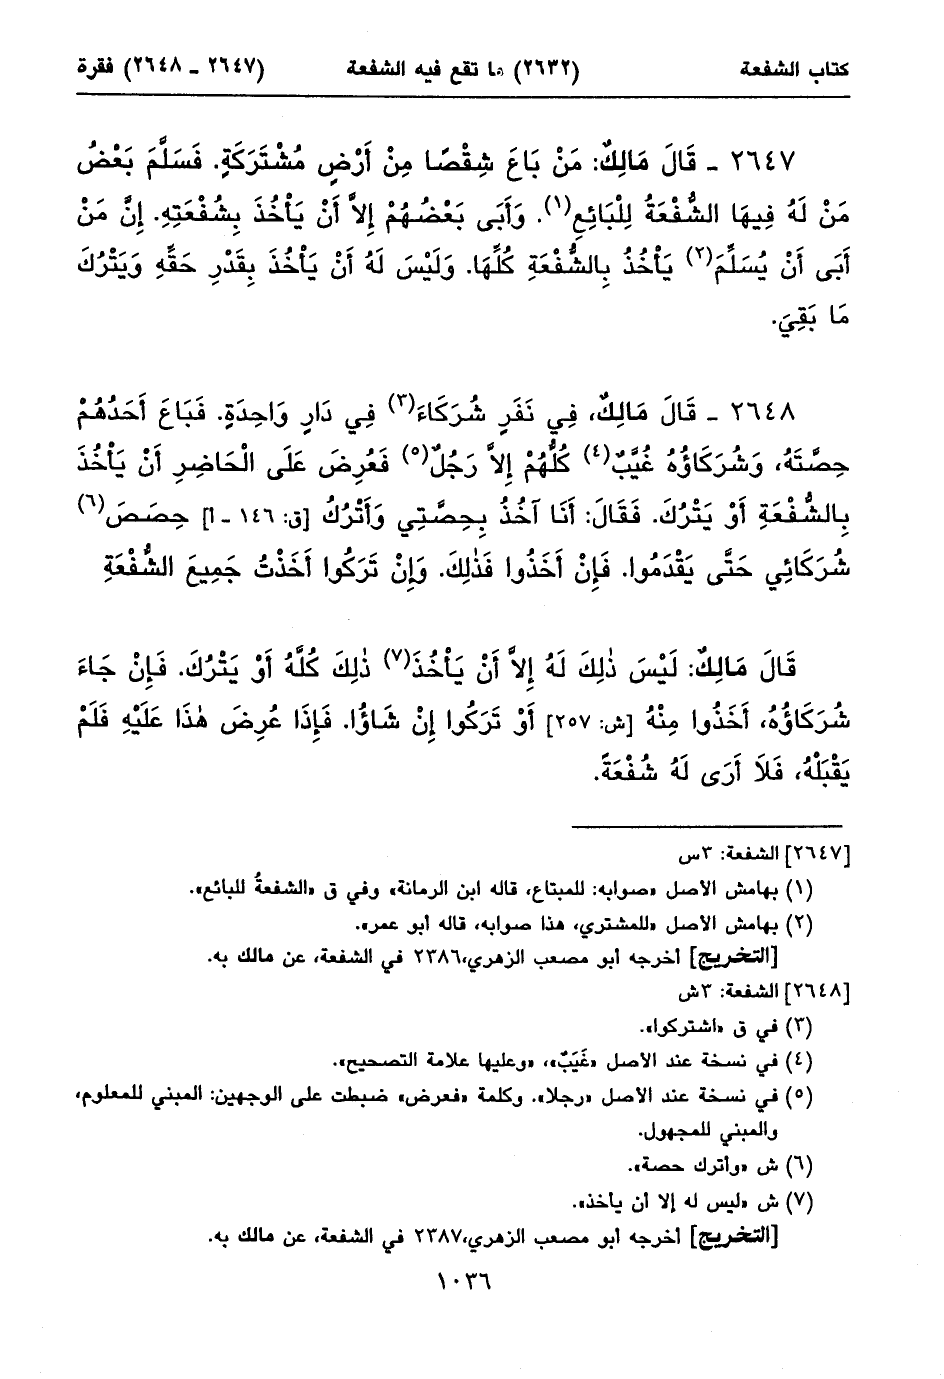 كتاب الشفعة (٢٦٣٢) ما تقع فيه الشفعة (٢٦٤٧ - ٢٦٤٨) فقرة
٢٦٤٧ - قَالَ مَالِكٌ: مَنْ بَاعَ شِقْصًا مِنْ أَرْضٍ مُشْتَرَكَةٍ. فَسَلَّمَ بَعْضُ
مَنْ لَهُ فِيهَا الشُّفْعَةُ لِلْبَائِعِ(١). وَأَبَى بَعْضُهُمْ إِلاَّ أَنْ يَأْخُذَ بِشُفْعَتِهِ. إِنَّ مَنْ
أَبَى أَنْ يُسَلِّمَ(٢) يَأْخُذُ بِالشُّفْعَةِ كُلِّهَا. وَلَيْسَ لَهُ أَنْ يَأْخُذَ بِقَدْرِ حَقِّهِ وَيَتْرُكَ
مَا بَقِيَ.
٢٦٤٨ - قَالَ مَالِكٌ، فِي نَفَرٍ شُرَكَاءَ(٣) فِي دَارٍ وَاحِدَةٍ. فَبَاعَ أَحَدُهُمْ
حِصَّتَهُ، وَشُرَكَاؤُهُ غُيَّبٌ(٤) كُلُّهُمْ إِلاَّ رَجُلٌ(٥) فَعُرِضَ عَلَى الْحَاضِرِ أَنْ يَأْخُذَ
بِالشُّفْعَةِ أَوْ يَتْرُكَ. فَقَالَ: أَنَا آخُذُ بِحِصَّتِي وَأَتْرُكُ [ق: ١٤٦ - أ] حِصَصَ(٦)
شُرَكَائِي حَتَّى يَقْدَمُوا. فَإِنْ أَخَذُوا فَذٰلِكَ. وَإِنْ تَرَكُوا أَخَذْتُ جَمِيعَ الشُّفْعَةِ
قَالَ مَالِكٌ: لَيْسَ ذٰلِكَ لَهُ إِلاَّ أَنْ يَأْخُذَ(٧) ذٰلِكَ كُلَّهُ أَوْ يَتْرُكَ. فَإِنْ جَاءَ
شُرَكَاؤُهُ، أَخَذُوا مِنْهُ [ش: ٢٥٧] أَوْ تَرَكُوا إِنْ شَاؤُا. فَإِذَا عُرِضَ هٰذَا عَلَيْهِ فَلَمْ
يَقْبَلْهُ، فَلاَ أَرَى لَهُ شُفْعَةً.
[٢٦٤٧] الشفعة: ٣س
(١) بهامش الأصل «صوابه: للمبتاع، قاله ابن الرمانة» وفي ق «الشفعةُ للبائع».
(٢) بهامش الأصل «للمشتري، هذا صوابه، قاله أبو عمر».
[التخريج] أخرجه أبو مصعب الزهري،٢٣٨٦ في الشفعة، عن مالك به.
[٢٦٤٨] الشفعة: ٣ش
(٣) في ق «اشتركوا».
(٤) في نسخة عند الأصل «غَيَبٌ»، «وعليها علامة التصحيح».
(٥) في نسخة عند الأصل «رجلا». وكلمة «فعرض» ضبطت على الوجهين: المبني للمعلوم،
والمبني للمجهول.
(٦) ش «وأترك حصة».
(٧) ش «ليس له إلا أن يأخذ».
[التخريج] أخرجه أبو مصعب الزهري،٢٣٨٧ في الشفعة، عن مالك به.
١٠٣٦